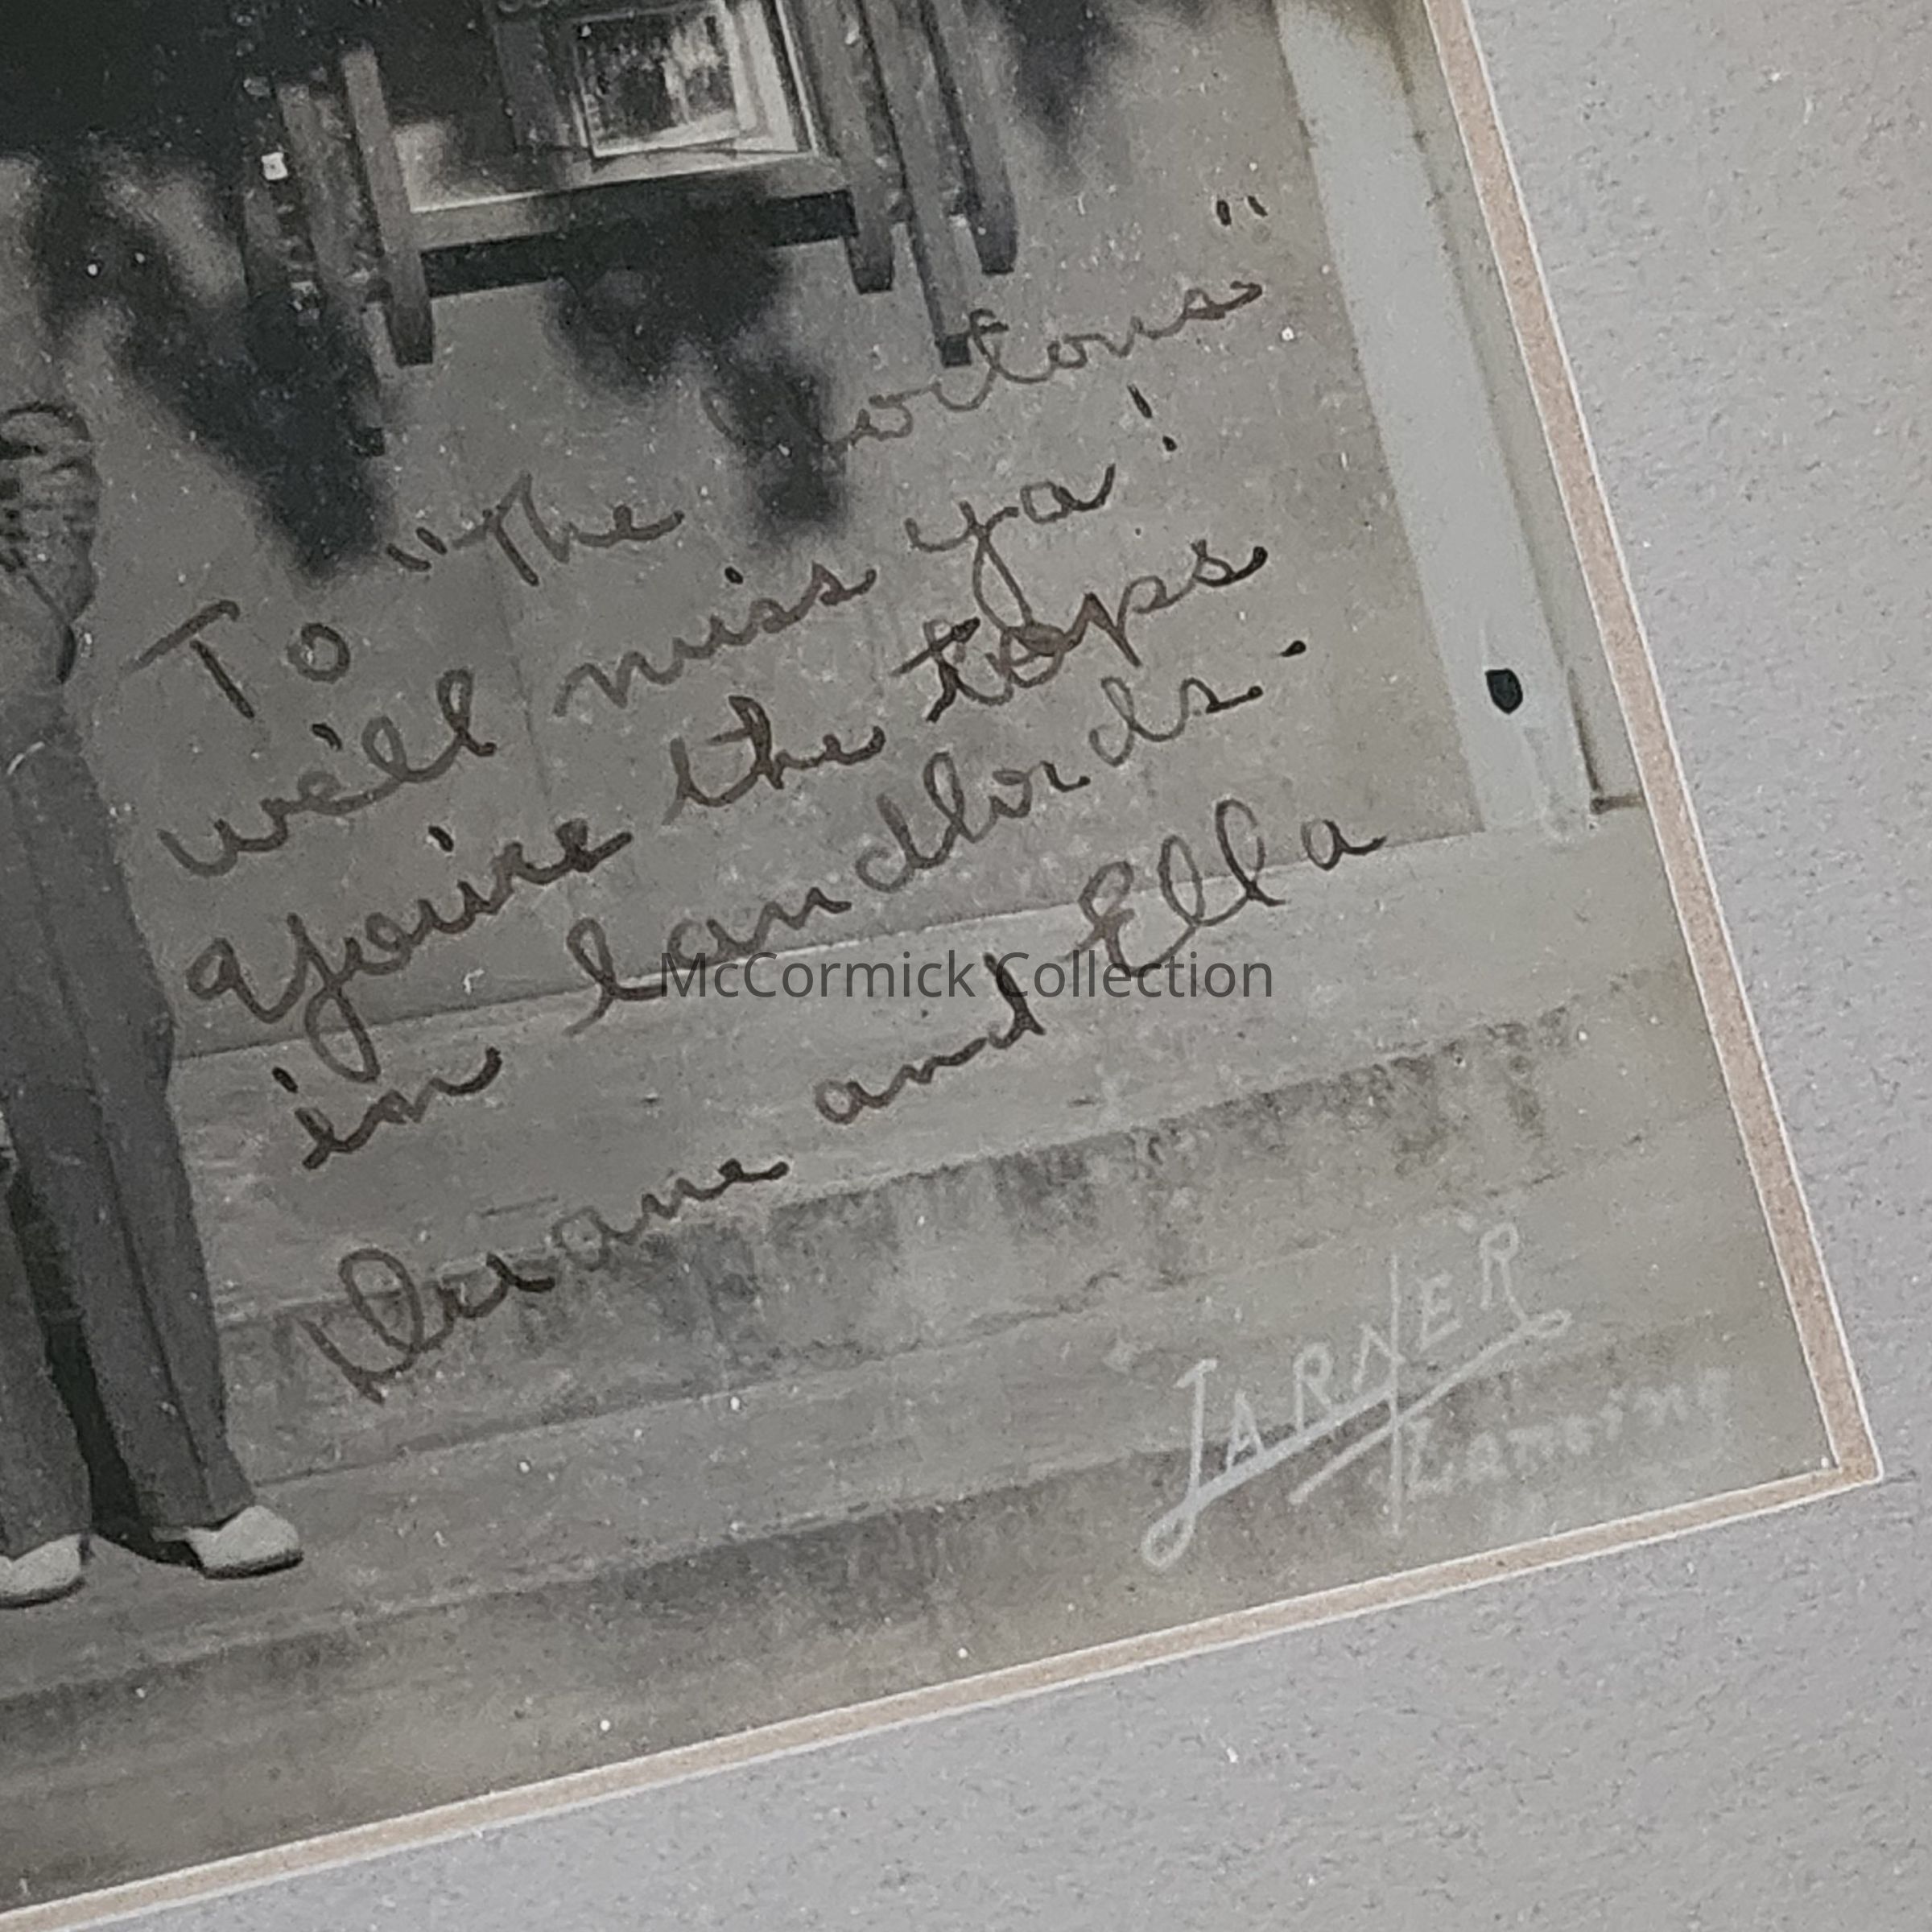 To "The
we'll miss ya!
You're the tops
in landlords.
Duane and Ella
McCormick Collection
JARNER
Lansing